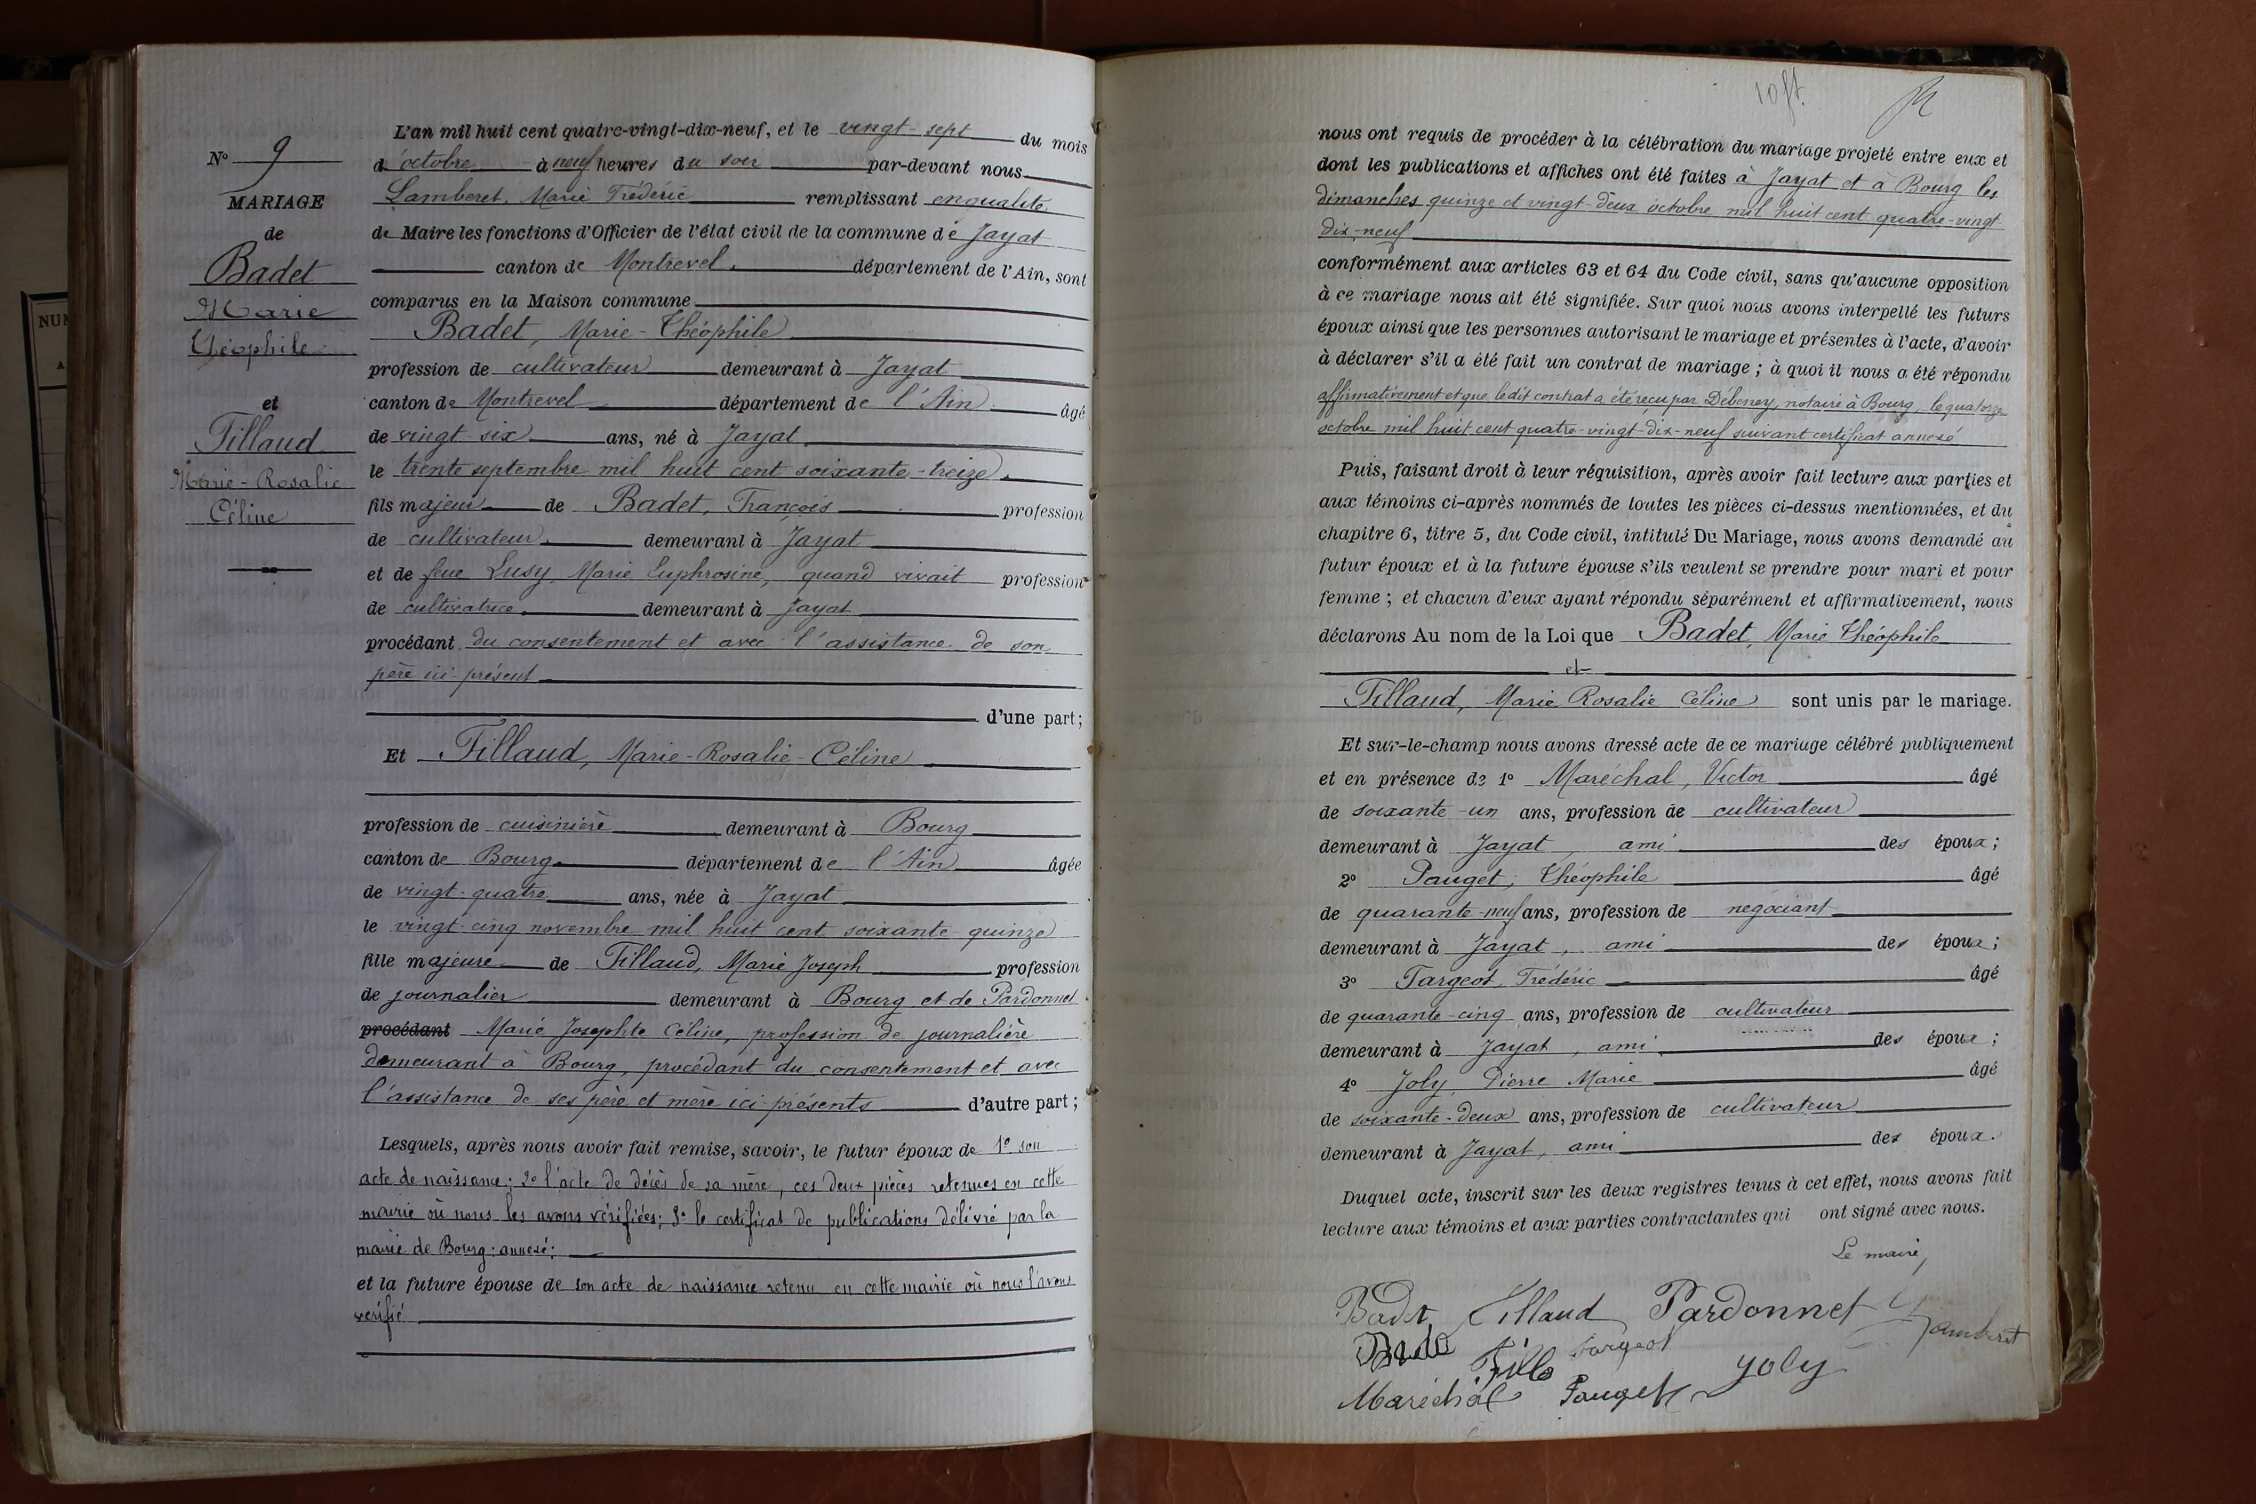 N° 9
MARIAGE
de
Badet
Marie
Théophile
et
Tillaud
Marie-Rosalie
Céline
L'an mil huit cent quatre-vingt-dix-neuf, et le vingt-sept du mois
d'octobre à neuf heures du soir par-devant nous
Lamberet, Marie Frédéric remplissant en qualité
de Maire les fonctions d'Officier de l'état civil de la commune de Jayat
canton de Montrevel département de l'Ain, sont
comparus en la Maison commune
Badet, Marie-Théophile
profession de cultivateur demeurant à Jayat
canton de Montrevel département de l'Ain âgé
de vingt-six ans, né à Jayat
le trente septembre mil huit cent soixante-treize
fils majeur de Badet, François profession
de cultivateur demeurant à Jayat
et de feue Lusy, Marie Euphrosine, quand vivait profession
de cultivatrice demeurant à Jayat
procédant du consentement et avec l'assistance de son
père ici présent
d'une part;
Et Tillaud, Marie-Rosalie-Céline
profession de cuisinière demeurant à Bourg
canton de Bourg département de l'Ain âgée
de vingt-quatre ans, née à Jayat
le vingt-cinq novembre mil huit cent soixante-quinze
fille majeure de Tillaud, Marie Joseph profession
de journalier demeurant à Bourg et de Pardonnet
procédant Marie Josephte Céline, profession de journalière
demeurant à Bourg, procédant du consentement et avec
l'assistance de ses père et mère ici présents d'autre part;
Lesquels, après nous avoir fait remise, savoir, le futur époux de 1° son
acte de naissance; 2° l'acte de décès de sa mère, ces deux pièces retenues en cette
mairie où nous les avons vérifiées; 3° le certificat de publications délivré par la
mairie de Bourg: annexé;
et la future épouse de son acte de naissance retenu en cette mairie où nous l'avons
vérifié
nous ont requis de procéder à la célébration du mariage projeté entre eux et
dont les publications et affiches ont été faites à Jayat et à Bourg les
dimanches quinze et vingt-deux octobre mil huit cent quatre-vingt
dix-neuf
conformément aux articles 63 et 64 du Code civil, sans qu'aucune opposition
à ce mariage nous ait été signifiée. Sur quoi nous avons interpellé les futurs
époux ainsi que les personnes autorisant le mariage et présentes à l'acte, d'avoir
à déclarer s'il a été fait un contrat de mariage; à quoi il nous a été répondu
affirmativement et que le dit contrat a été reçu par Débeney, notaire à Bourg, le quatorze
octobre mil huit cent quatre-vingt-dix-neuf suivant certificat annexé
Puis, faisant droit à leur réquisition, après avoir fait lecture aux parties et
aux témoins ci-après nommés de toutes les pièces ci-dessus mentionnées, et du
chapitre 6, titre 5, du Code civil, intitulé Du Mariage, nous avons demandé au
futur époux et à la future épouse s'ils veulent se prendre pour mari et pour
femme; et chacun d'eux ayant répondu séparément et affirmativement, nous
déclarons Au nom de la Loi que Badet, Marie Théophile
et
Tillaud, Marie Rosalie Céline sont unis par le mariage.
Et sur-le-champ nous avons dressé acte de ce mariage célébré publiquement
et en présence de 1° Maréchal, Victor âgé
de soixante-un ans, profession de cultivateur
demeurant à Jayat, ami des époux;
2° Pauget, Théophile âgé
de quarante-neuf ans, profession de négociant
demeurant à Jayat, ami des époux;
3° Fargeot, Frédéric âgé
de quarante-cinq ans, profession de cultivateur
demeurant à Jayat, ami des époux;
4° Joly, Pierre Marie âgé
de soixante-deux ans, profession de cultivateur
demeurant à Jayat, ami des époux.
Duquel acte, inscrit sur les deux registres tenus à cet effet, nous avons fait
lecture aux témoins et aux parties contractantes qui ont signé avec nous.
Le maire,
Badet Tillaud Pardonnet Lamberet
Fargeot
Joly
Maréchal Pauget